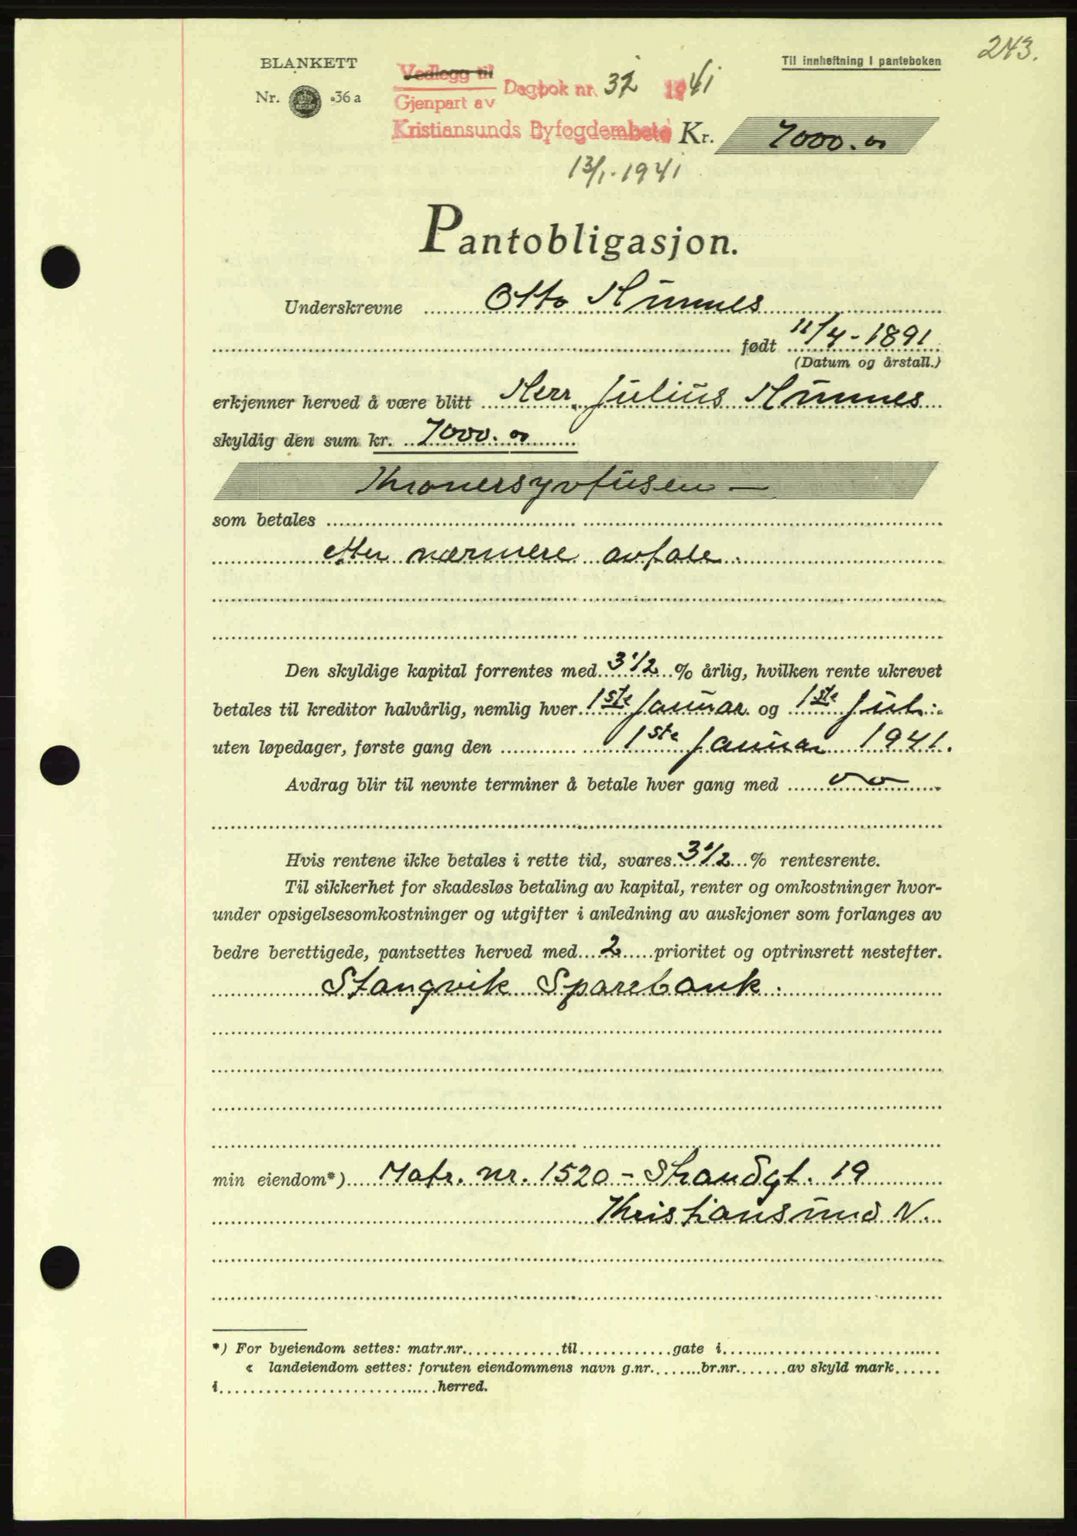 243.
BLANKETT
Nr. 36a
Til innheftning i panteboken
Vedlegg til
Gjenpart av Dagbok nr. 32 1941
Kristiansunds Byfogdembete Kr. 7000.00
13/1-1941
Pantobligasjon.
Underskrevne Otto Hunnes
født 11/4-1891
(Datum og årstall.)
erkjenner herved å være blitt Herr Julius Hunnes
skyldig den sum kr. 7000.00
Kronersyvtusen —
som betales
etter nærmere avtale.
Den skyldige kapital forrentes med 3 1/2 % årlig, hvilken rente ukrevet
betales til kreditor halvårlig, nemlig hver 1ste Januar og 1ste Juli
uten løpedager, første gang den 1ste Januar 1941.
Avdrag blir til nevnte terminer å betale hver gang med
Hvis rentene ikke betales i rette tid, svares 3 1/2 % rentesrente.
Til sikkerhet for skadesløs betaling av kapital, renter og omkostninger hvor-
under opsigelsesomkostninger og utgifter i anledning av auskjoner som forlanges av
bedre berettigede, pantsettes herved med 2 prioritet og optrinsrett nestefter.
Stangvik Sparebank.
min eiendom*) Matr. nr. 1520 - Strandgt. 19
Kristiansund N.
*) For byeiendom settes: matr.nr. til gate i
« landeiendom settes: foruten eiendommens navn g.nr. br.nr. av skyld mark
i herred.